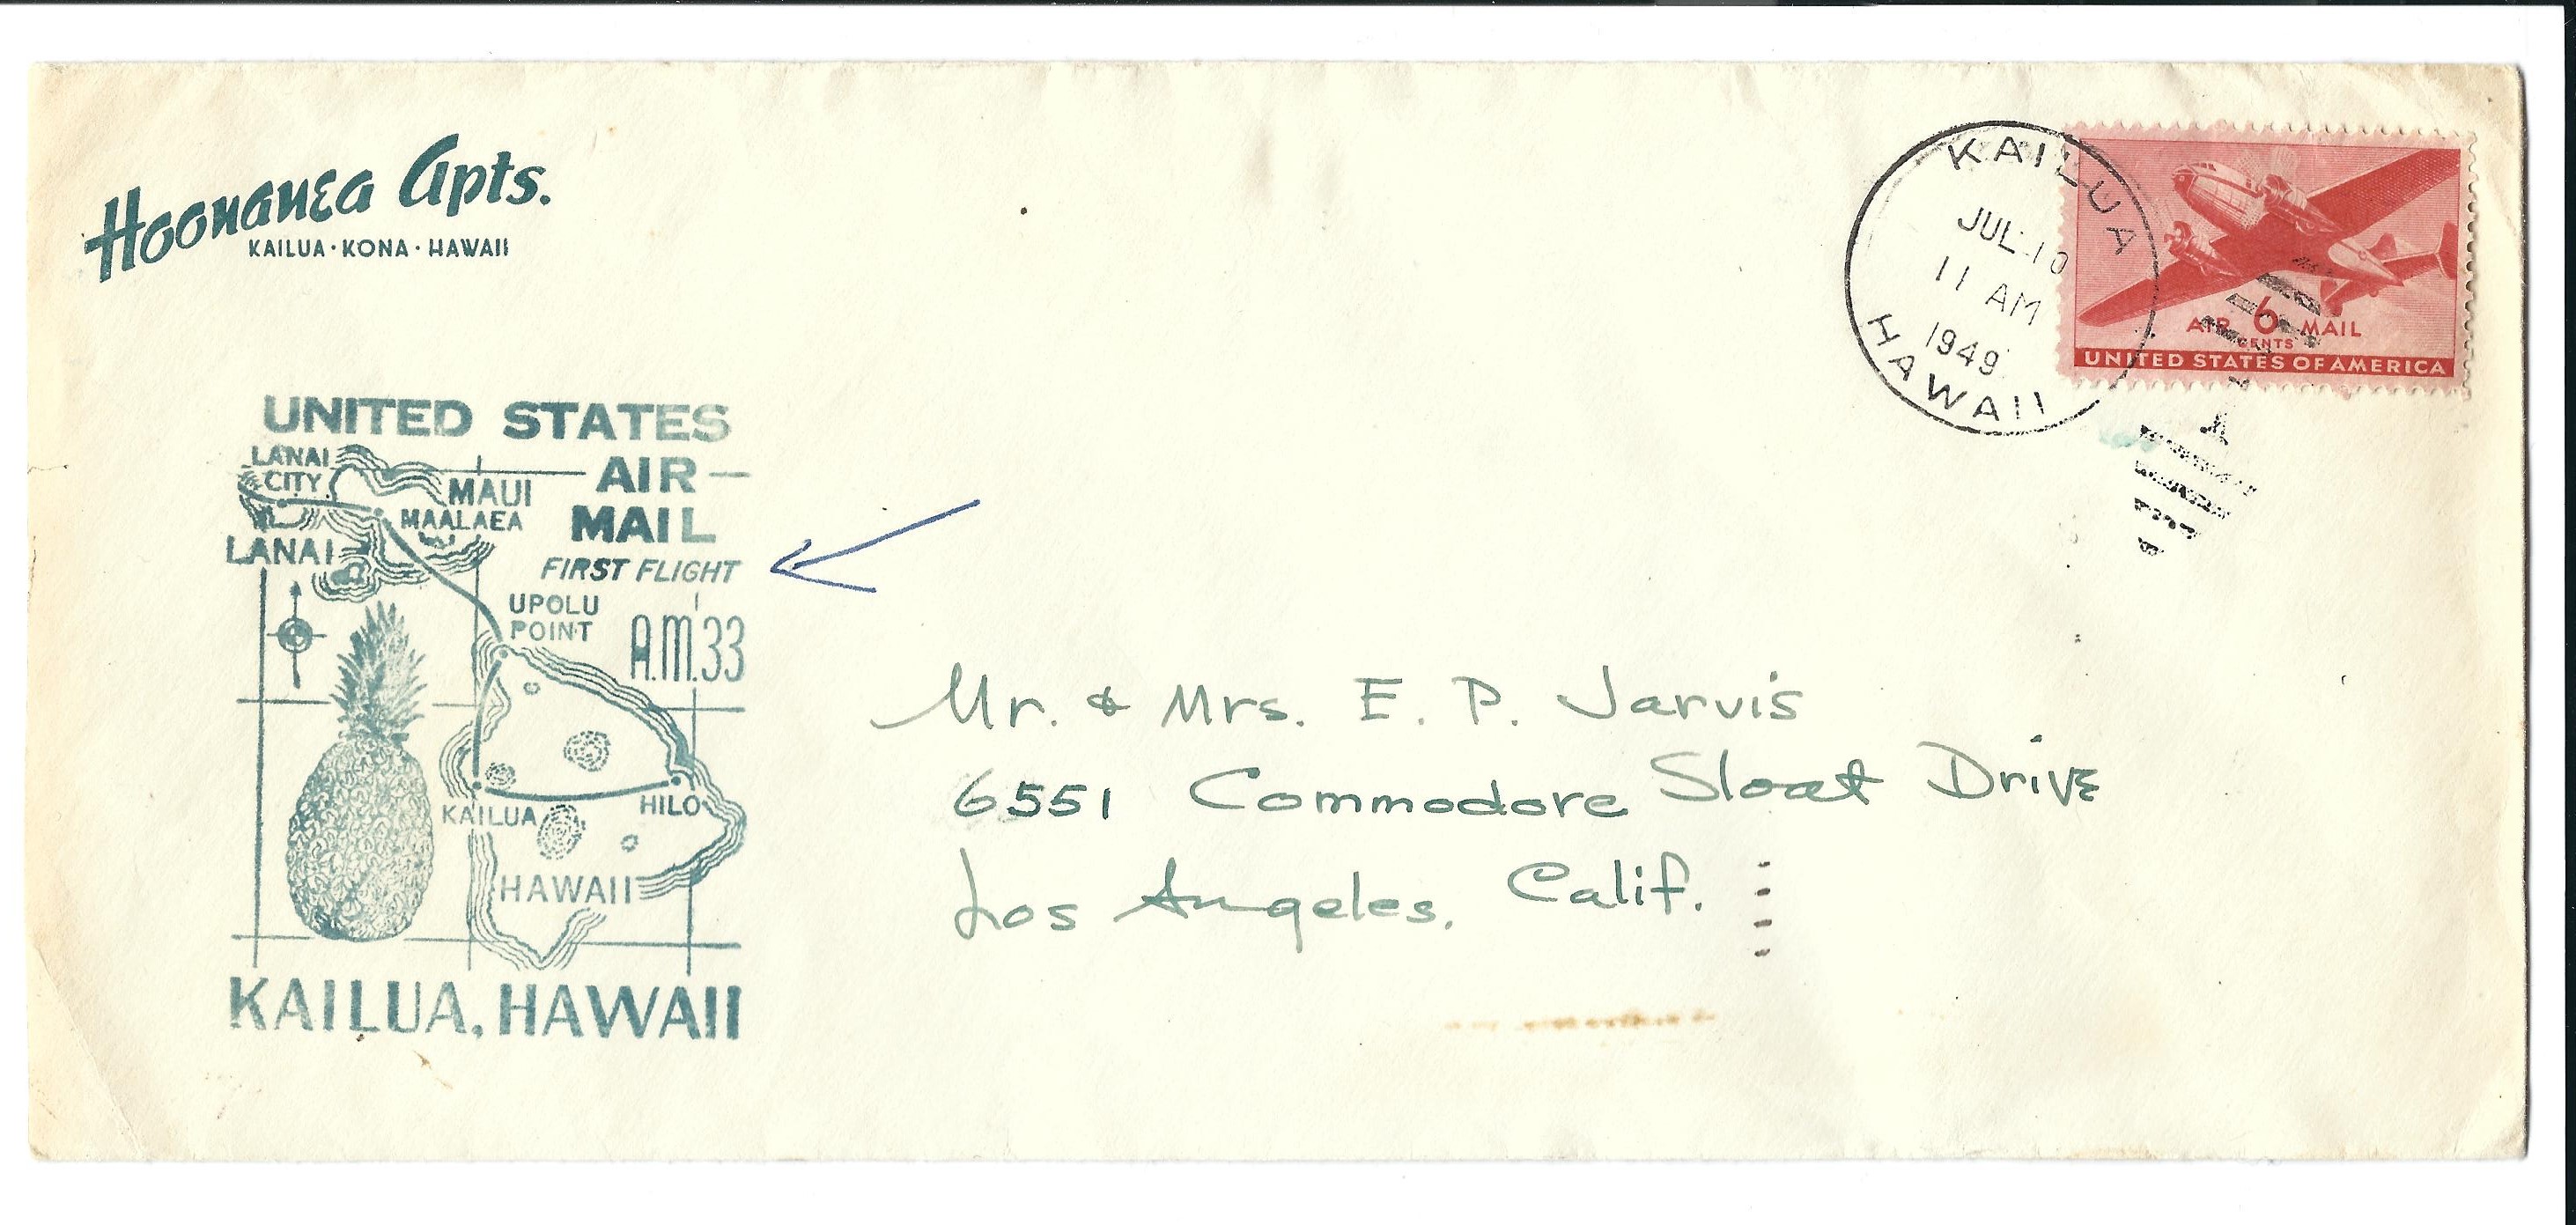 Hoonanea Apts.
KAILUA · KONA · HAWAII
KAILUA
JUL 10
11 AM
1949
HAWAII
AIR 6 MAIL
CENTS
UNITED STATES OF AMERICA
UNITED STATES
AIR
MAIL
FIRST FLIGHT
A.M.33
LANAI
CITY
MAUI
MAALAEA
LANAI
UPOLU
POINT
KAILUA
HILO
HAWAII
KAILUA, HAWAII
Mr. & Mrs. E. P. Jarvis
6551 Commodore Sloat Drive
Los Angeles. Calif.